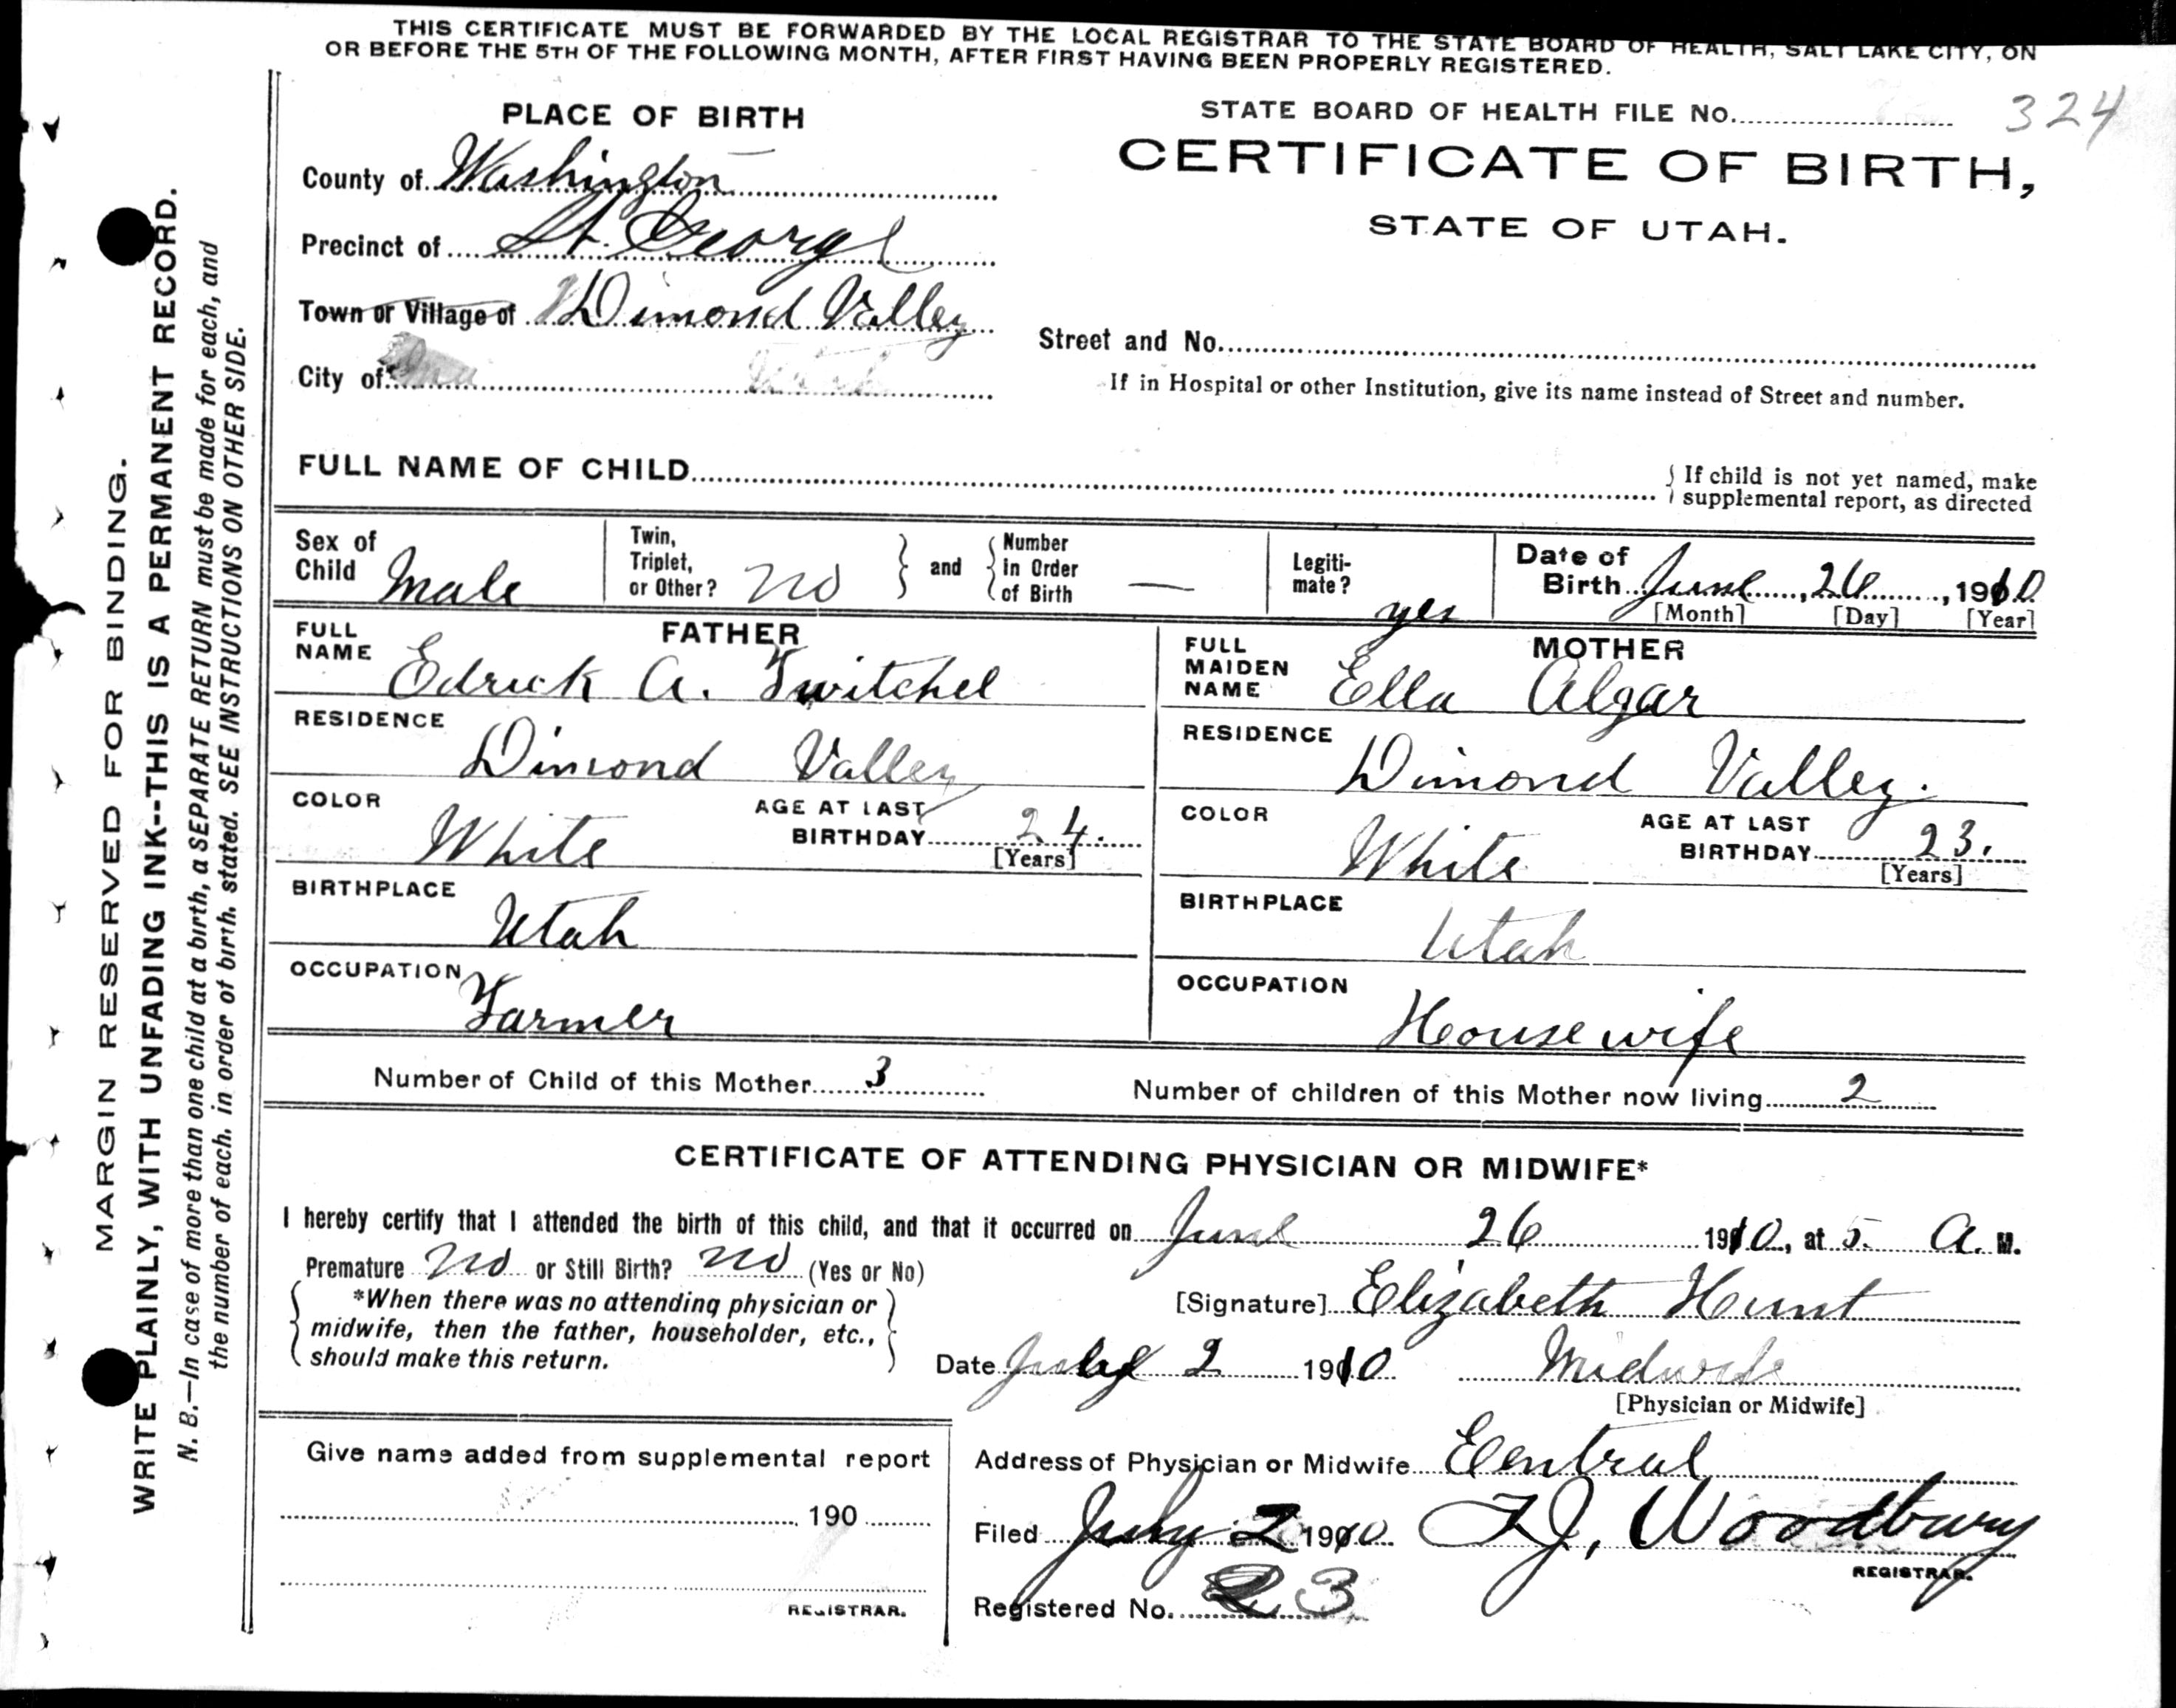 THIS CERTIFICATE MUST BE FORWARDED BY THE LOCAL REGISTRAR TO THE STATE BOARD OF HEALTH, SALT LAKE CITY, ON
OR BEFORE THE 5TH OF THE FOLLOWING MONTH, AFTER FIRST HAVING BEEN PROPERLY REGISTERED.
PLACE OF BIRTH
County of Washington
Precinct of St. George
Town or Village of Dimond Valley
City of
STATE BOARD OF HEALTH FILE No. 324
CERTIFICATE OF BIRTH,
STATE OF UTAH.
Street and No.
If in Hospital or other Institution, give its name instead of Street and number.
FULL NAME OF CHILD
If child is not yet named, make
supplemental report, as directed
Sex of Child Male
Twin, Triplet, or Other? no
and
Number in Order of Birth —
Legiti-mate? yes
Date of Birth June, 26, 1910
[Month] [Day] [Year]
FATHER
FULL NAME Edrick A. Twitchel
RESIDENCE Dimond Valley
COLOR White
AGE AT LAST BIRTHDAY 24.
[Years]
BIRTHPLACE Utah
OCCUPATION Farmer
MOTHER
FULL MAIDEN NAME Ella Algar
RESIDENCE Dimond Valley.
COLOR White
AGE AT LAST BIRTHDAY 23.
[Years]
BIRTHPLACE Utah
OCCUPATION Housewife
Number of Child of this Mother 3
Number of children of this Mother now living 2
CERTIFICATE OF ATTENDING PHYSICIAN OR MIDWIFE*
I hereby certify that I attended the birth of this child, and that it occurred on June 26 1910, at 5. A. M.
Premature No or Still Birth? no (Yes or No)
*When there was no attending physician or
midwife, then the father, householder, etc.,
should make this return.
[Signature] Elizabeth Hunt
Date July 2 1910 Midwife
[Physician or Midwife]
Give name added from supplemental report
190
REGISTRAR.
Address of Physician or Midwife Central
Filed July 2 1910 F J, Woodbury
REGISTRAR.
Registered No. 23
MARGIN RESERVED FOR BINDING.
WRITE PLAINLY, WITH UNFADING INK--THIS IS A PERMANENT RECORD.
N. B.—In case of more than one child at a birth, a SEPARATE RETURN must be made for each, and
the number of each, in order of birth, stated. SEE INSTRUCTIONS ON OTHER SIDE.